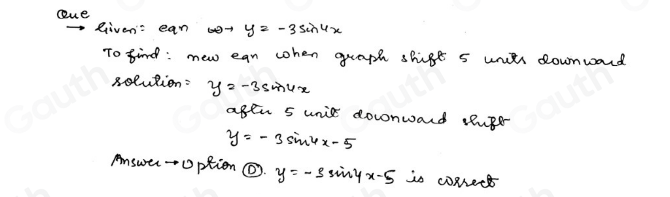 Que
→ Given: eqn ⇔→ y = -3 sin4x
To find: new eqn when graph shift 5 units downward
solution: y = -3sin4x
after 5 unit downward shift
y = - 3 sin4x - 5
Answer → option Ⓓ. y = -3 sin4x-5 is correct